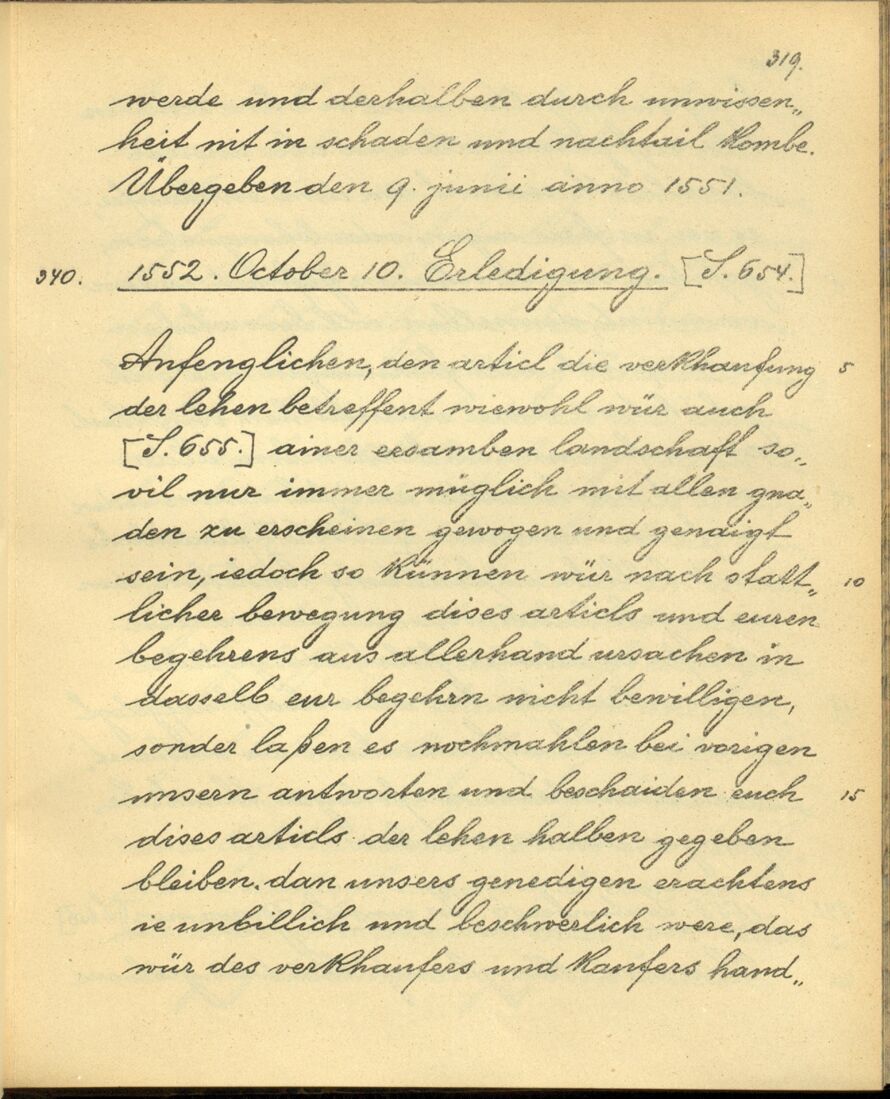 319.
werde und derhalben durch unwissen„
heit nit in schaden und nachtail kombe.
Übergeben den 9. junii anno 1551.
340. 1552. October 10. Erledigung. [S. 654.]
Anfenglichen, den articl die verkhaufung 5
der lehen betreffent wiewohl wür auch
[S. 655.] ainer ersamben landschaft so„
vil nur immer müglich mit allen gna„
den zu erscheinen gewogen und genaigt
sein, iedoch so künnen wür nach statt„ 10
licher bewegung dises articls und euren
begehrens aus allerhand ursachen in
dasselb eur begehrn nicht bewilligen,
sonder laßen es nochmahlen bei vorigen
unsern antworten und beschaiden euch 15
dises articls der lehen halben gegeben
bleiben. dan unsers genedigen erachtens
ie unbillich und beschwerlich were, das
wür des verkhaufers und kaufers hand„